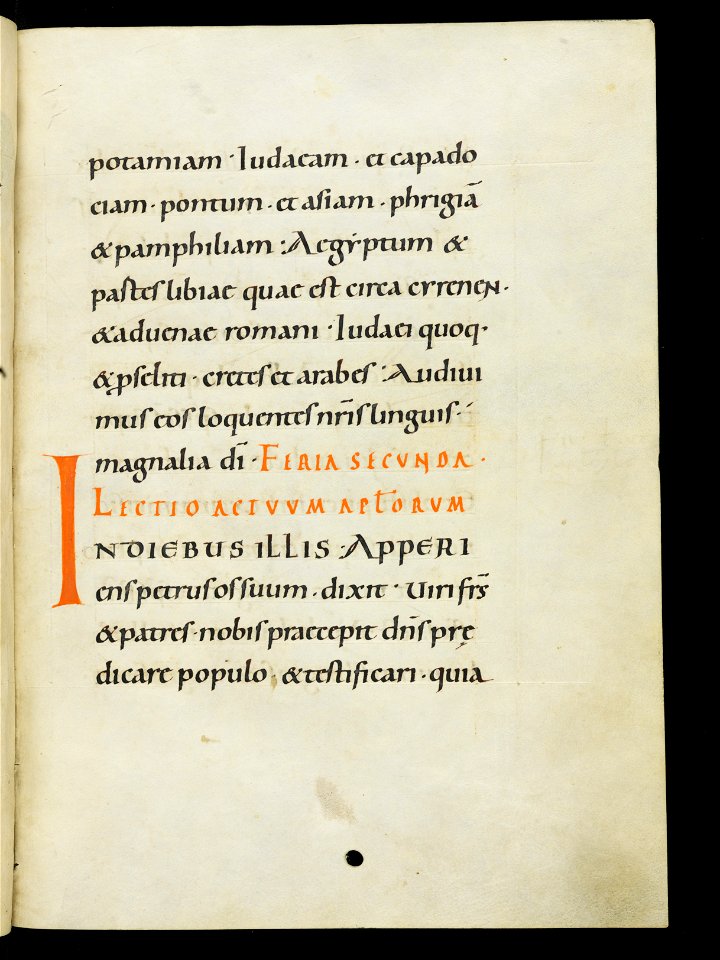 potamiam · Iudaeam · et capado
ciam · pontum · et asiam · phrigiā
& pamphiliam : Aegyptum &
partes libiae quae est circa cyrenen ·
& aduenae romani · Iudaei quoq·
& ꝓseliti · cretes et arabes : Audiui
mus eos loquentes nr̄is linguis ·
magnalia dī · FERIA SECUNDA ·
LECTIO ACTUUM APŁORUM
INDIEBUS ILLIS · APPERI
ens petrus os suum · dixit · Uiri frs̄
& patres · nobis praecepit dn̄s prę
dicare populo · & testificari · quia